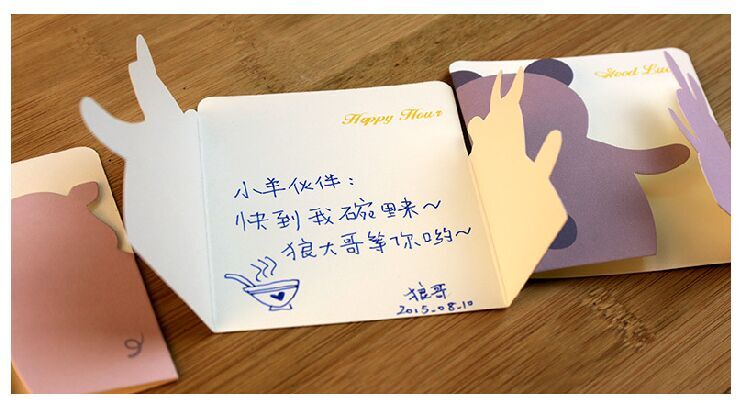 Happy Hour
Good Luc
小羊伙伴：
快到我碗里来～
狼大哥等你哟～
狼哥
2015.08.10